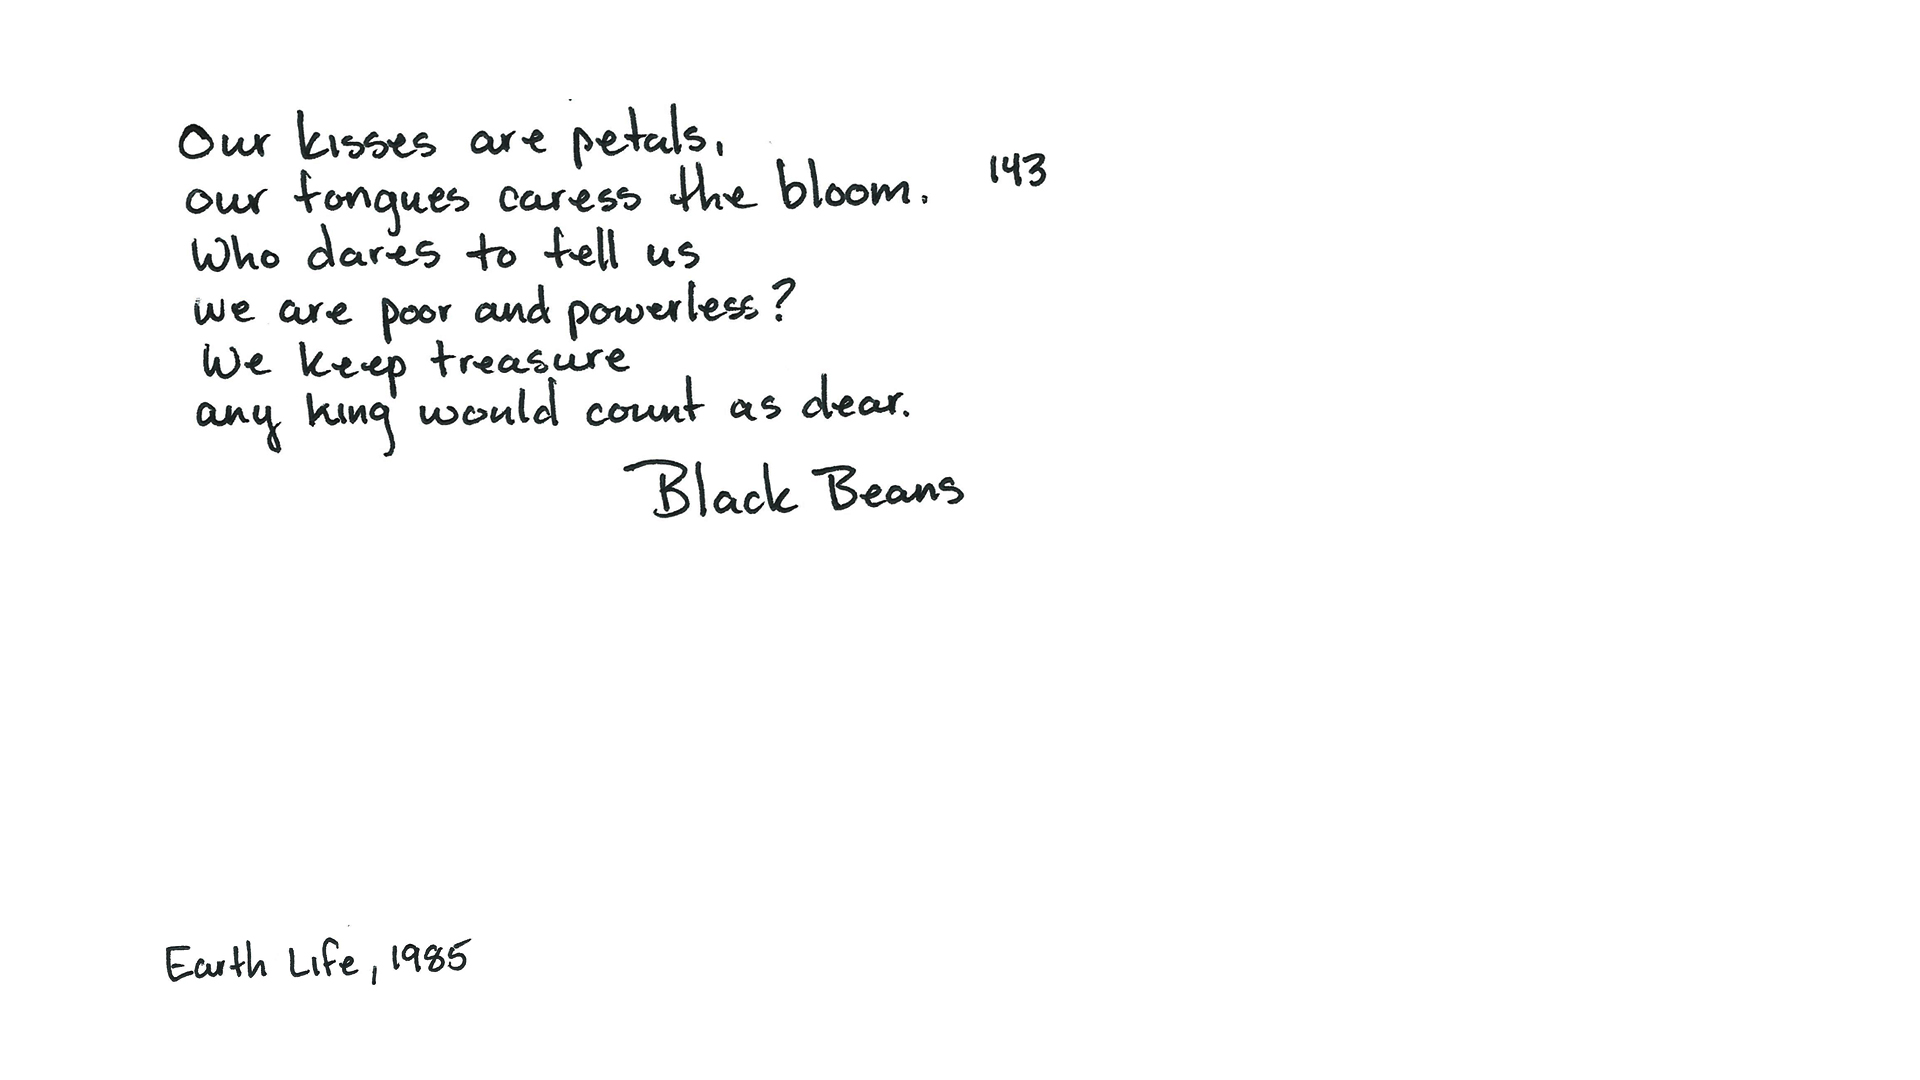 Our kisses are petals,
our tongues caress the bloom.
143
Who dares to tell us
we are poor and powerless?
We keep treasure
any king would count as dear.
Black Beans
Earth Life, 1985